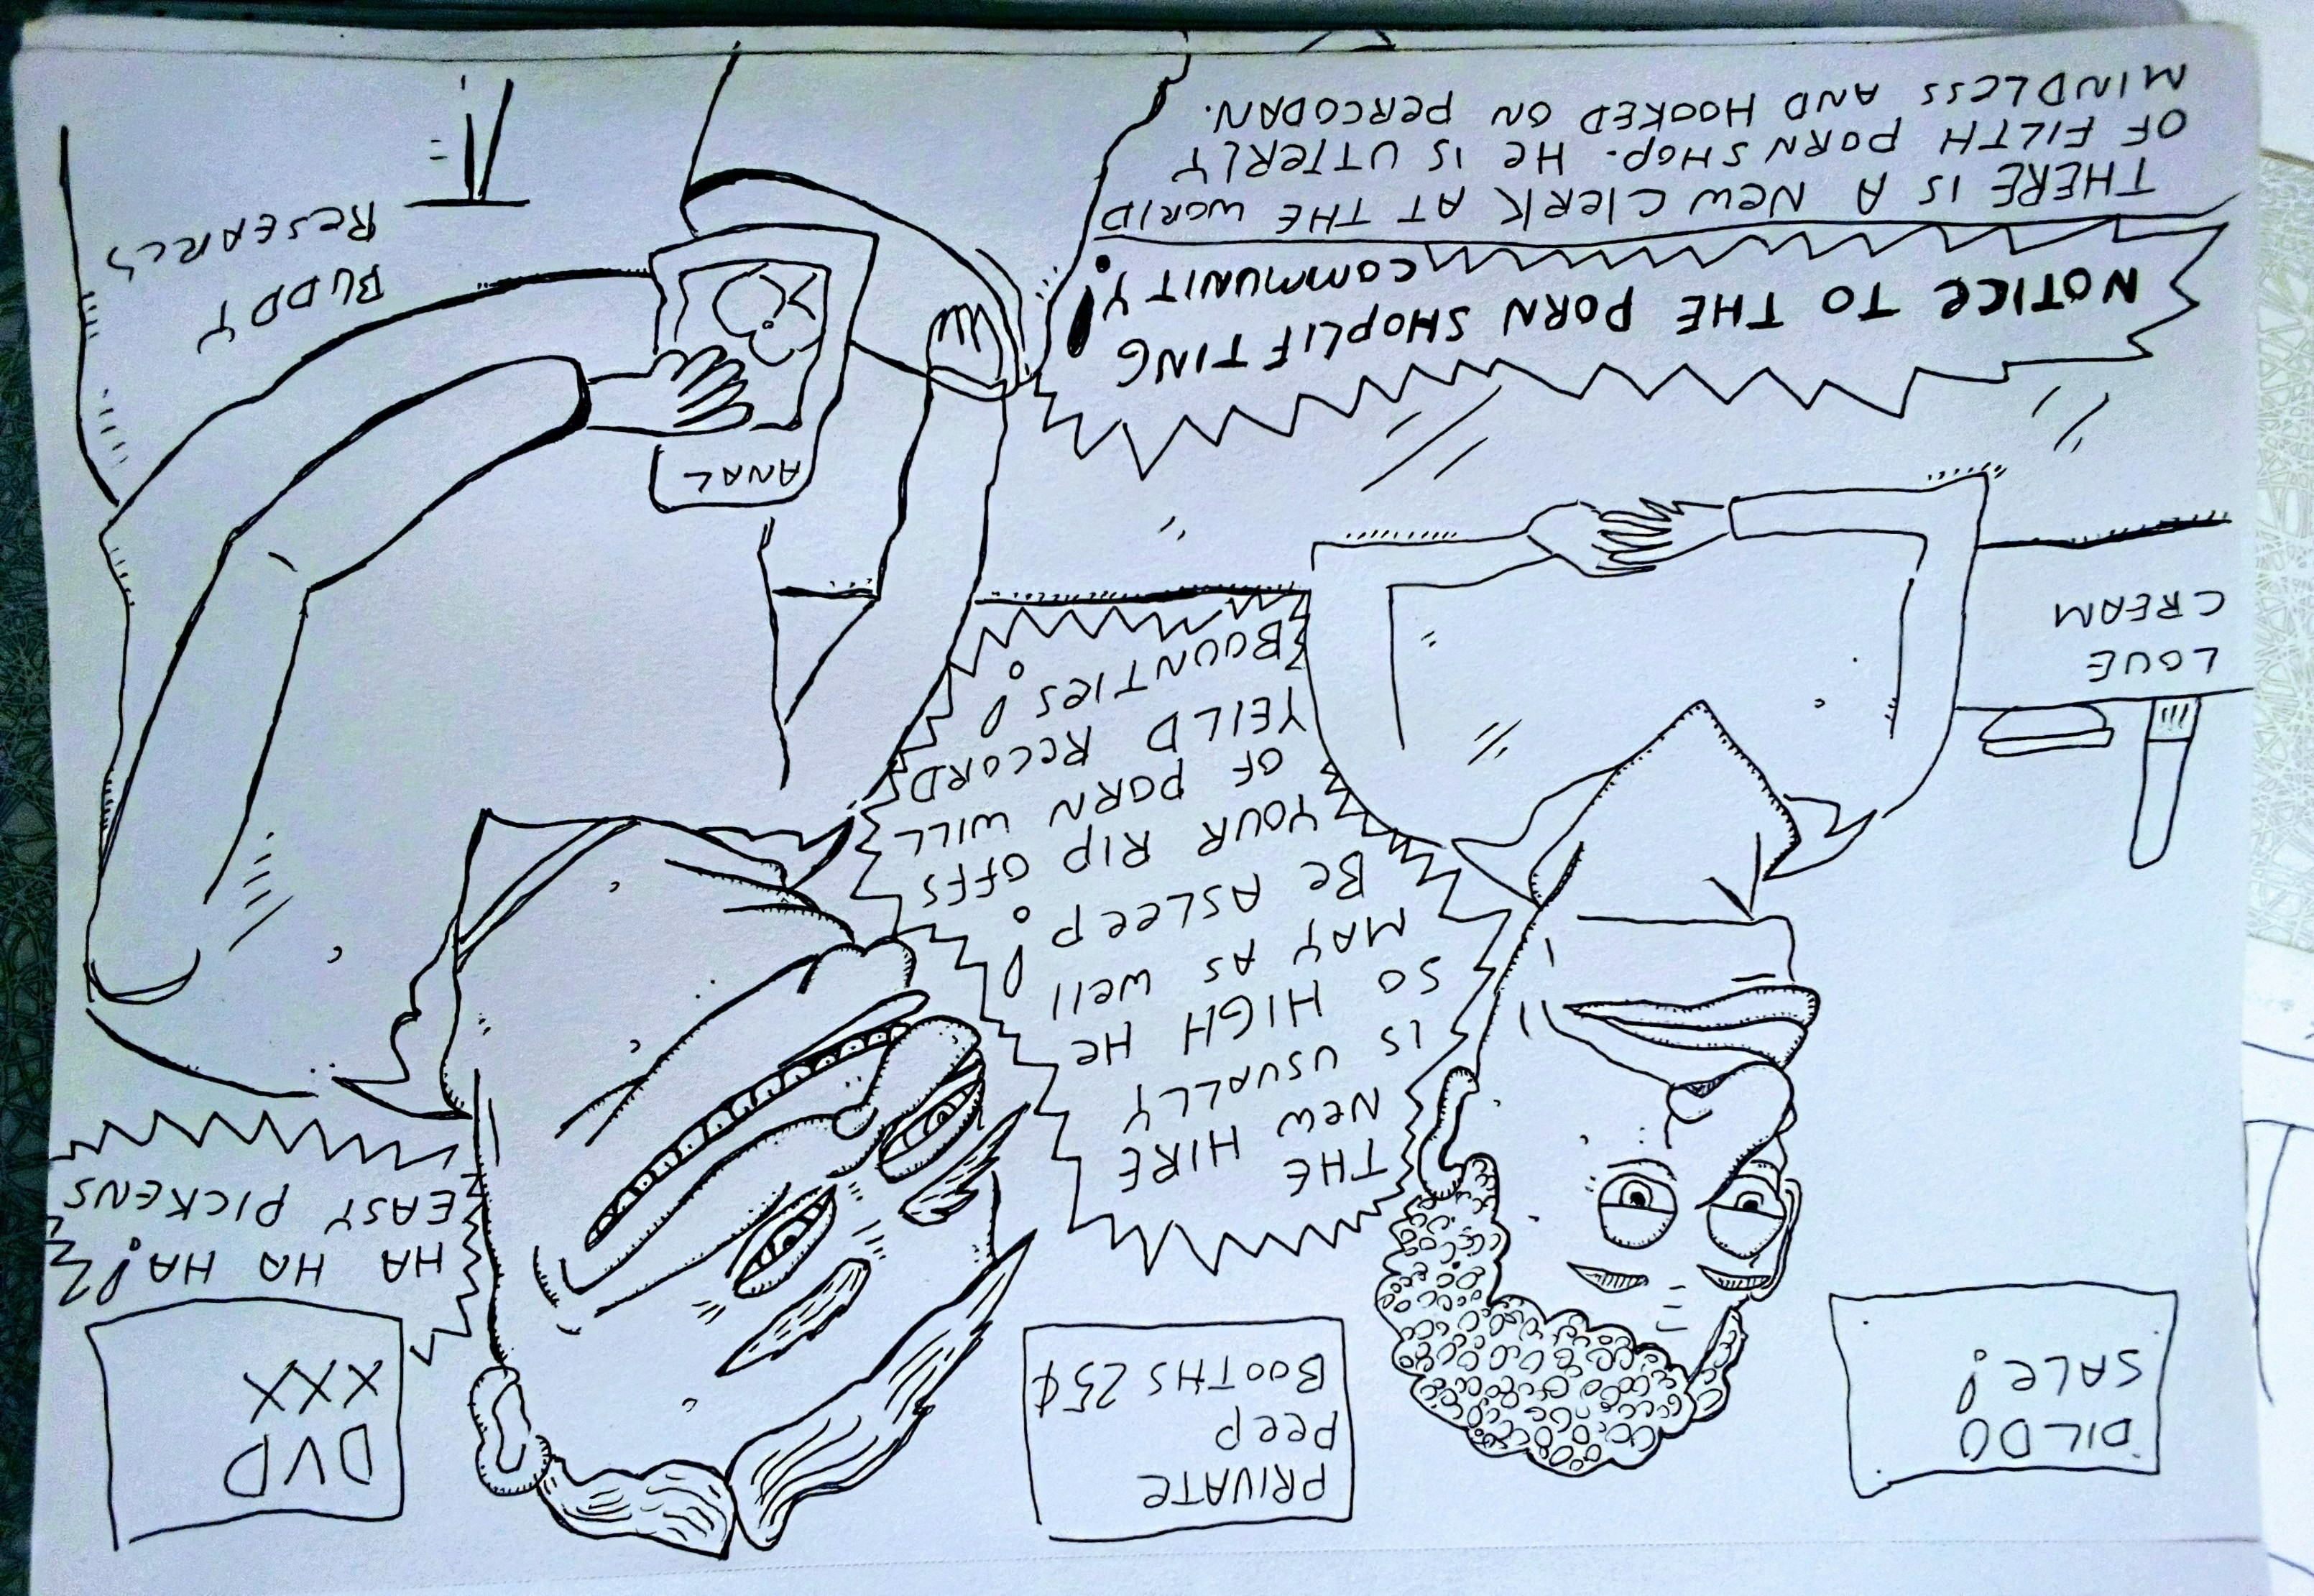 DILDO
SALE!
PRIVATE
PEEP
BOOTHS 25¢
DVD
XXX
HA HA HA!
EASY PICKENS
THE
NEW HIRE
IS USUALLY
SO HIGH HE
MAY AS WELL
BE ASLEEP!
YOUR RIP OFFS
OF PORN WILL
YEILD RECORD
BOUNTIES!
LOVE
CREAM
ANAL
NOTICE TO THE PORN SHOPLIFTING
COMMUNITY!
THERE IS A NEW CLERK AT THE WORLD
OF FILTH PORN SHOP. HE IS UTTERLY
MINDLESS AND HOOKED ON PERCODAN.
BUDDY